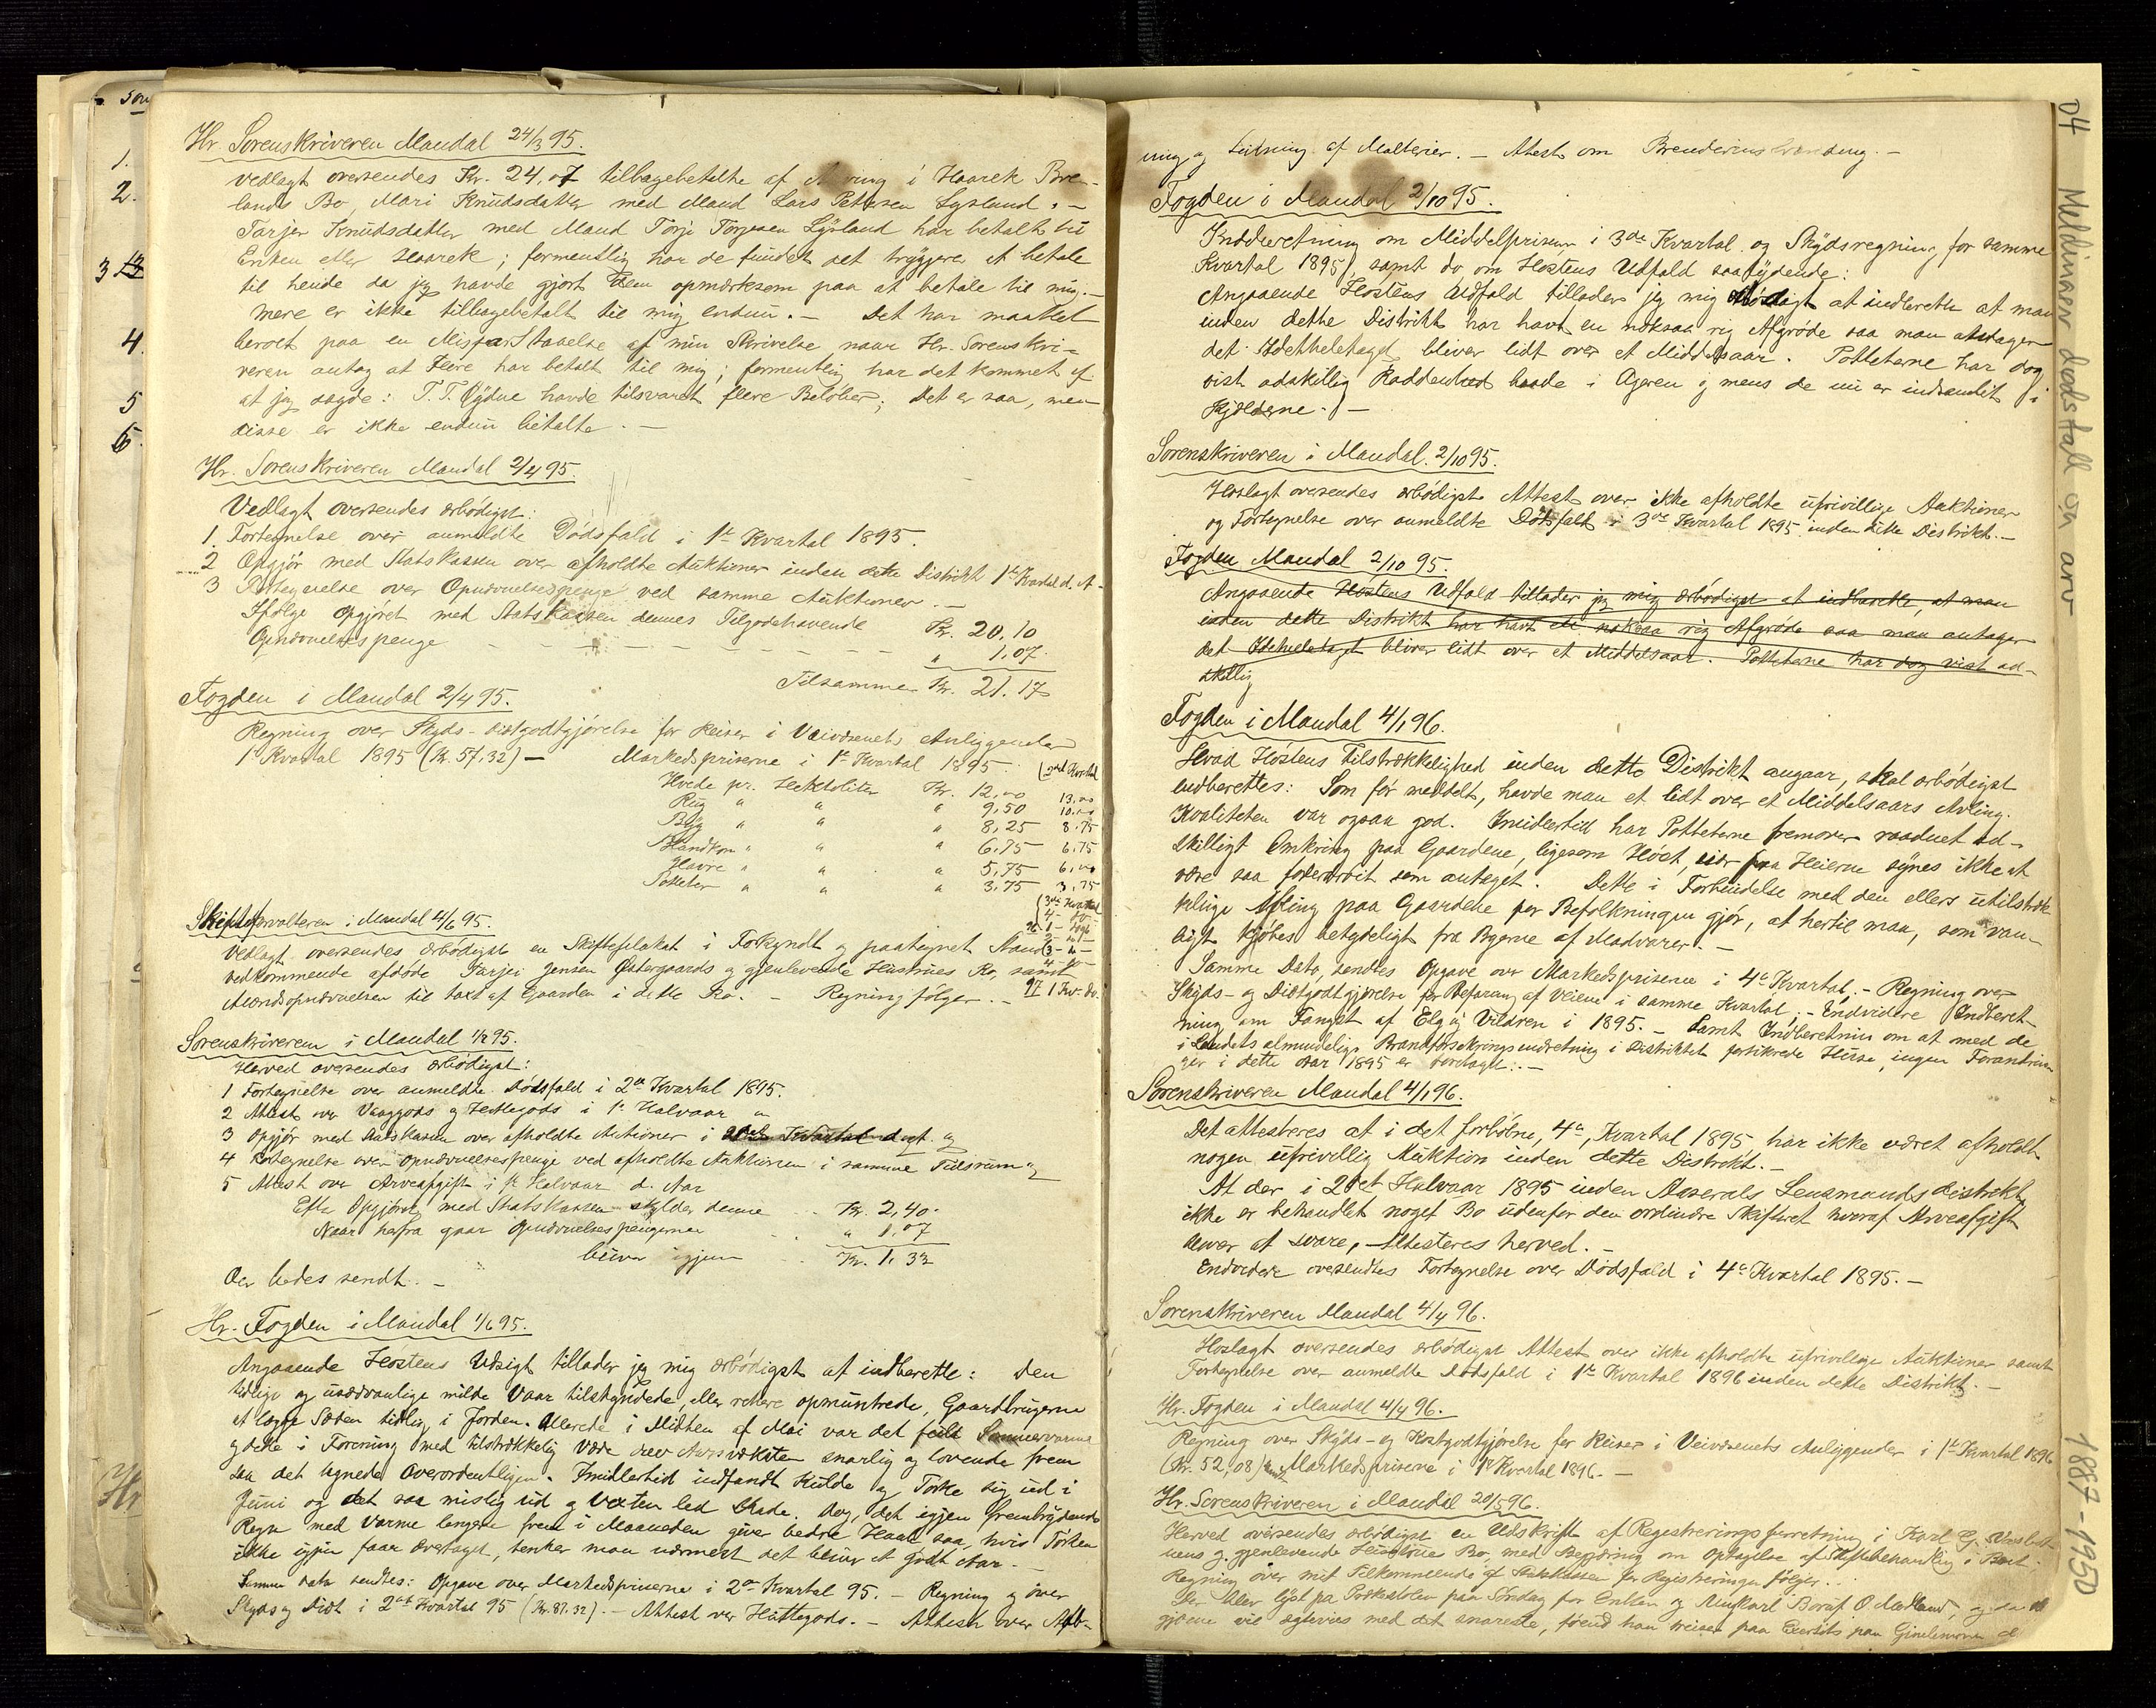 Hr. Sorenskriveren Mandal 24/3 95.
Vedlagt oversendes Kr. 24,07 tilbagebetalte af i Haarek Bre-
lands Bo, Mari Knudsdatter med Mand Lars Petersen Lysland. —
Tarjer Knudsdatter med Mand Torje Torjesen Lysland har betalt til
Enken eller Haarek; formentlig har de fundet det tryggere at betale
til hende da jeg havde gjort dem opmærksom paa at betale til mig. —
mere er ikke tilbagebetalt til mig endnu. — Det har maattet
beroet paa en Misforstaaelse af min Skrivelse naar Hr. Sorenskri-
veren antog at Flere har betalt til mig; formentlig har det kommet af
at jeg sagde: T. T. Øydne havde tilsvaret flere Beløber; Det er saa, men
disse er ikke endnu betalte. —
Hr. Sorenskriveren Mandal 2/4 95.
Vedlagt oversendes ærbødigst:
1. Fortegnelse over anmeldte Dødsfald i 1ste Kvartal 1895.
2 Opgjør med Statskassen over afholdte Auktioner inden dette Distrikt 1ste Kvartal d. A.
3 Fortegnelse over Opnævnelsespenge ved samme Auktioner. —
Ifølge Opgjøret med Statskassen dennes Tilgodehavende Kr. 20.10
Opnævnelsespenge — — — — — " 1,07
Tilsammen Kr. 21.17
Fogden i Mandal 2/4 95.
Regning over Skyds- Diætgodtgjørelse for Reiser i Veivæsenets Anliggender
1ste Kvartal 1895 (Kr. 57.32) — Markedspriserne i 1ste Kvartal 1895. (2det Kvartal
Hvede pr. Hektoliter Kr. 12,00 13,00
Rug " " " 9,50 10.00
Byg " " " 8,25 8.75
Blandkorn " " " 6.75 6.75
Havre " " " 5,75 6,00
Potteter " " " 3,75 3,75
(3die Kvartal
Skifteforvalteren i Mandal 4/6 95.
Vedlagt oversendes ærbødigst en Skifteplakat i Forkyndt og paategnet Stand
vedkommende afdøde Tarjei Jensen Østergaards og gjenlevende Hustrues Bo, samt
Mændsopnævnelsen til taxt af Gaarden i dette Bo. — Regning følger. — 97 1 Kv. do.
Sorenskriveren i Mandal 1/7 95.
Herved oversendes ærbødigst:
1 Fortegnelse over anmeldte Dødsfald i 2det Kvartal 1895.
2 Attest over Vraggods og Hittegods i 1ste Halvaar "
3 Opgjør med Statskassen over afholdte Auktioner i 2det Kvartal d. A. og
4 Fortegnelse over Opnævnelsespenge ved afholdte Auktioner i samme Tidsrum og
5 Attest over Arveafgift i 1ste Halvaar d. Aar
Efter Opgjøret med Statskassen skylder denne Kr. 2,40.
Naar herfra gaar Opnævnelsespengerne " 1,07
bliver igjen Kr. 1.33
der bedes sendt. —
Hr. Fogden i Mandal 1/6 95.
Angaaende Høstens Udsigt tillader jeg mig ærbødigst at indberette: Den
tidlige og usædvanlige milde Vaar tilskyndede, eller rettere opmuntrede, Gaardbrugerne
at lægge Sæden tidlig i Jorden. Allerede i Midten af Mai var det fuld Sommervarme
og dette i Forening med tilstrækkelig Væde drev Aarsvæksten snarlig og lovende frem
saa det tegnede Overordentligen. Imidlertid indfandt Kulde og Tørke sig ud i
Juni og det saa mislig ud og Væxten led Skade. Dog, det igjen frembrydende
Regn med Varme længere frem i Maaneden giver bedre Haab saa, hvis Tørken
ikke igjen faar Overtaget, tænker man nærmest det bliver et godt Aar. —
Samme Dato sendtes: Opgave over Markedspriserne i 2det Kvartal 95. — Regning og over
Skyds og Diæt i 2det Kvartal 95 (Kr. 87.32). — Attest over Hittegods. — Attest over Afb-
ning og Tælning af Malterier. — Attest om Brænderi
Fogden i Mandal 2/10 95.
Indberetning om Middelpriserne i 3die Kvartal og Skydsregning for samme
Kvartal 1895, samt do om Høstens Udfald saalydende:
Angaaende Høstens Udfald tillader jeg mig ærbødigst at indberette at man
inden dette Distrikt har havt en noksaa rig Afgrøde saa man antager
det Idetheletaget bliver lidt over et Middelsaar. Potteterne har dog
vist adskillig Raddenhed baade i Ageren og mens de nu er indsamlet i
Kjælderne. —
Sorenskriveren i Mandal. 2/10 95.
Hoslagt oversendes ærbødigst Attest over ikke afholdte ufrivillige Auktioner
og Fortegnelse over anmeldte Dødsfald i 3die Kvartal 1895 inden dette Distrikt. —
Fogden Mandal 2/10 95.
Angaaende Høstens Udfald tillader jeg mig ærbødigst at indberette, at man
inden dette Distrikt har havt en noksaa rig Afgrøde saa man antager
det Idetheletaget bliver lidt over et Middelsaar. Potteterne har dog vist ad-
skillig
Fogden i Mandal 4/1 96.
Hvad Høstens Tilstrækkelighed inden dette Distrikt angaar, skal ærbødigst
indberettes: Som før meddelt, havde man et lidt over et Middelsaars Avling.
Kvaliteten var ogsaa god. Imidlertid har Potteterne fremover raadnet ad-
skilligt Omkring paa Gaardene, ligesom Høet, især fra Heierne synes ikke at
være saa foderdrøit som antaget. Dette i Forbindelse med den ellers utilstræk-
kelige Avling paa Gaardene for Befolkningen gjør, at hertil maa, som van-
ligt kjøbes betydeligt fra Byerne af Madvarer. —
Samme Dato sendtes Opgave over Markedspriserne i 4de Kvartal. — Regning over
Skyds- og Diætgodtgjørelse for Befaring af Veiene i samme Kvartal; — Endvidere Indberet-
ning om Fangst af Elg og Vildren i 1895. — Samt Indberetning om at med de
i Landets almindelige Brandforsikringsindretning i Distriktet forsikrede Huse, ingen Forandrin-
ger i dette Aar 1895 er foretaget. —
Sorenskriveren Mandal 4/1 96.
Det attesteres at i det forløbne, 4de, Kvartal 1895 har ikke været afholdt
nogen ufrivillig Auktion inden dette Distrikt. —
At der i 2det Halvaar 1895 inden Aaserals Lensmandsdistrikt
ikke er behandlet noget Bo udenfor den ordinære Skifteret hvoraf Arveafgift
bliver at svare, Attesteres herved. —
Endvidere oversendtes Fortegnelse over Dødsfald i 4de Kvartal 1895. —
Sorenskriveren Mandal 4/4 96.
Hoslagt oversendes ærbødigst Attest over ikke afholdte ufrivillige Auktioner samt
Fortegnelse over anmeldte Dødsfald i 1ste Kvartal 1896 inden dette Distrikt. —
Hr. Fogden i Mandal 4/4 96.
Regning over Skyds- og Kostgodtgjørelse for Reiser i Veivæsenets Anliggender i 1ste Kvartal 1896
(Kr. 52,08) samt Markedspriserne i 1ste Kvartal 1896. —
Hr. Sorenskriveren i Mandal 20/5 96.
Herved oversendes ærbødigst en Udskrift af Registreringsforretning i Karl G.
og gjenlevende Hustrues Bo, med Begjæring om Optagelse af Skiftebehandling i Boet.
Regning over mit Tilkommende af Statskassen for Registreringen følger.
Der blev lyst paa Kirkebakken paa Søndag for Enken og Ungkarl O Medland,
gjerne vil med det snareste, førend han reiser paa
04 Meldinger dødsfall og arv
1887-1950